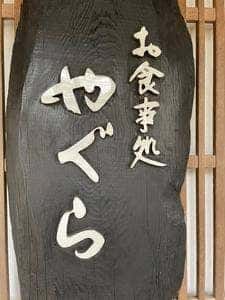 お食事処
やぐら